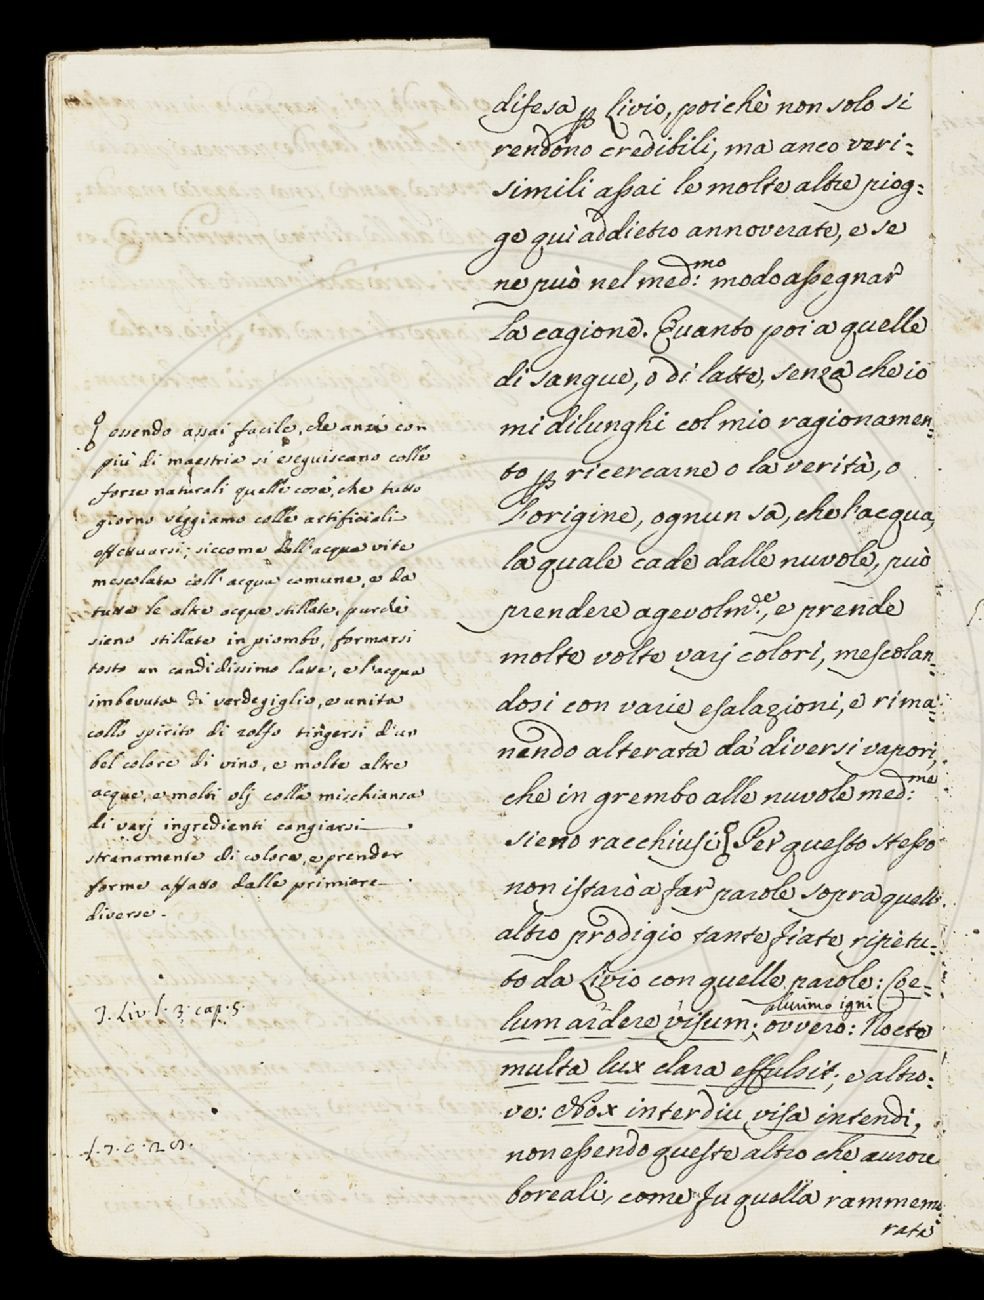 difesa ꝑ Livio, poichè non solo si
rendono credibili, ma anco veri=
simili assai le molte altre piog=
ge quì addietro annoverate, e se
ne può nel med:mo modo assegnar
la cagione. Quanto poi a quelle
di sangue, o di latte, senza che io
mi dilunghi col mio ragionamen=
to ꝑ ricercarne o la verità, o
l'origine, ognun sà, che l'acqua,
la quale cade dalle nuvole, può
prendere agevolm:te, e prende
molte volte varj colori, mescolan=
dosi con varie esalazioni, e rima=
nendo alterata da diversi vapori,
che in grembo alle nuvole med:me
sieno racchiusi. Per questo stesso
non istarò a far parole sopra quell'
altro prodigio tante fiate ripetu=
to da Livio con quelle parole: Coe=
lum ardere visum plurimo igni; ovvero: Nocte
multa lux clara effulsit; e altro=
ve: Nox interdiu visa intendi,
non essendo queste altro che aurore
boreali, come fu quella rammem=
rata
essendo assai facile, che anzi con
più di maestria si eseguiscano colle
forze naturali quelle cose, che tutto
giorno veggiamo colle artificiali
effettuarsi; siccome dell'acqua vite
mescolata coll'acqua comune, e da
tutte le altre acque stillate, purchè
sieno stillate in piombo, formarsi
tosto un candidissimo latte, e l'acqua
imbevuta di verdegiglio, e unita
collo spirito di zolfo tingersi d'un
bel colore di vino, e molte altre
acque, e molti olj colla mischianza
di varj ingredienti cangiarsi
stranamente di colore, e prender
forme affatto dalle primiere
diverse.
T. Liv. l. 3. cap. 5.
l. 7. c. 28.